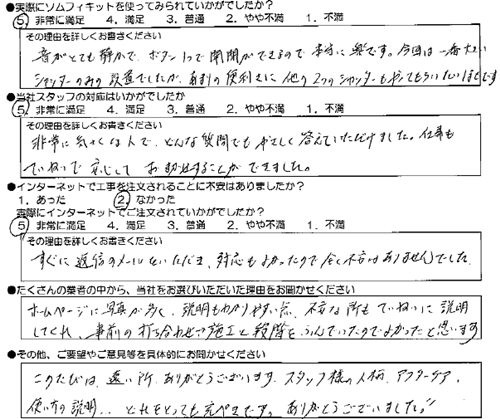 ●実際にソムフィキットを使ってみられていかがでしたか？
5. 非常に満足　4. 満足　3. 普通　2. やや不満　1. 不満
その理由を詳しくお書きください
音がとても静かで、ボタン1つで開閉ができるので本当に楽です。今回は一番大きい
シャッターのみの設置でしたが、あまりの便利さに他の2つのシャッターもやってもらいたいほどです
●当社スタッフの対応はいかがでしたか
5. 非常に満足　4. 満足　3. 普通　2. やや不満　1. 不満
その理由を詳しくお書きください
非常に気さくな人で、どんな質問でもやさしく答えていただけました。仕事も
ていねいで安心しておまかせすることができました。
●インターネットで工事を注文されることに不安はありましたか？
1. あった　2. なかった
実際にインターネットでご注文されていかがでしたか？
5. 非常に満足　4. 満足　3. 普通　2. やや不満　1. 不満
その理由を詳しくお書きください
すぐに返信のメールをいただき、対応もよかったので全く不安はありませんでした。
●たくさんの業者の中から、当社をお選びいただいた理由をお聞かせください
ホームページに写真が多く、説明もわかりやすい点、不安な所もていねいに説明
してくれ、事前の打ち合わせ、施工と段階をふんでいたのでよかったと思います
●その他、ご要望やご意見等を具体的にお聞かせください
このたびは、遠い所、ありがとうございます。スタッフ様の人柄、アフターケア、
使い方の説明… どれをとっても完ぺきです。ありがとうございました。